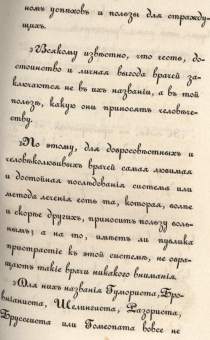 номъ успѣховъ и пользы для стражду-
щихъ.
„Всякому извѣстно, что честь, до-
стоинство и личная выгода врачей за-
ключаются не въ ихъ названіи, а въ той
пользѣ, какую они приносятъ человѣче-
ству.
„По этому, для добросовѣстныхъ и
человѣколюбивыхъ врачей самая любимая
и достойная послѣдованія система или
метода леченія есть та, которая, болѣе
и скорѣе другихъ, приноситъ пользу боль-
нымъ; а на то, имѣетъ ли публика
пристрастіе къ этой системѣ, не обра-
щаютъ такіе врачи никакого вниманія.
„Для нихъ названія Гумориста, Бро-
вніаниста, Шеллингиста, Разориста,
Бруссеиста или Гомеопата вовсе не